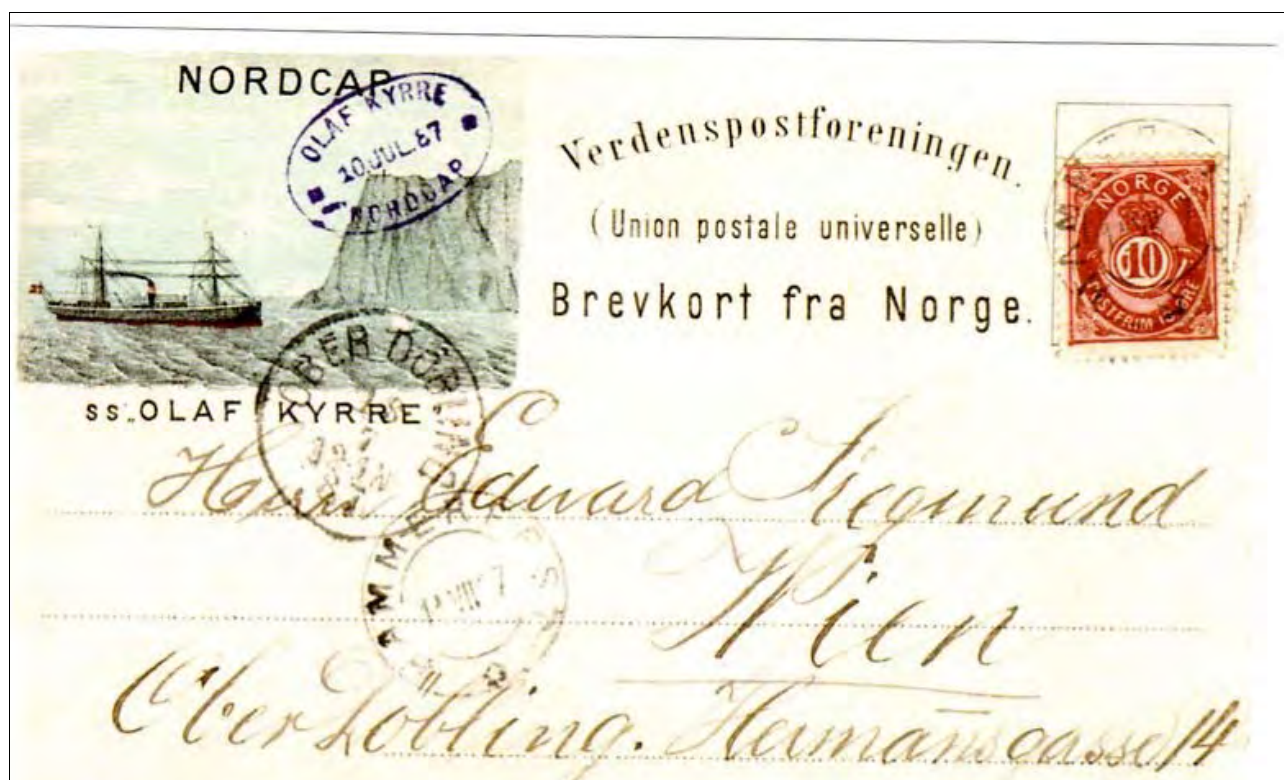 NORDCAP
OLAF KYRRE
10 JUL. 87
NORDCAP
Verdenspostforeningen.
(Union postale universelle)
Brevkort fra Norge.
NORGE
10
POSTFRIM
SS „OLAF KYRRE"
OBER DÖBLING
7
HAMMERFEST
VII
Herrn Edward Siegmund
Wien
Ober Döbling. Hermansgasse 14